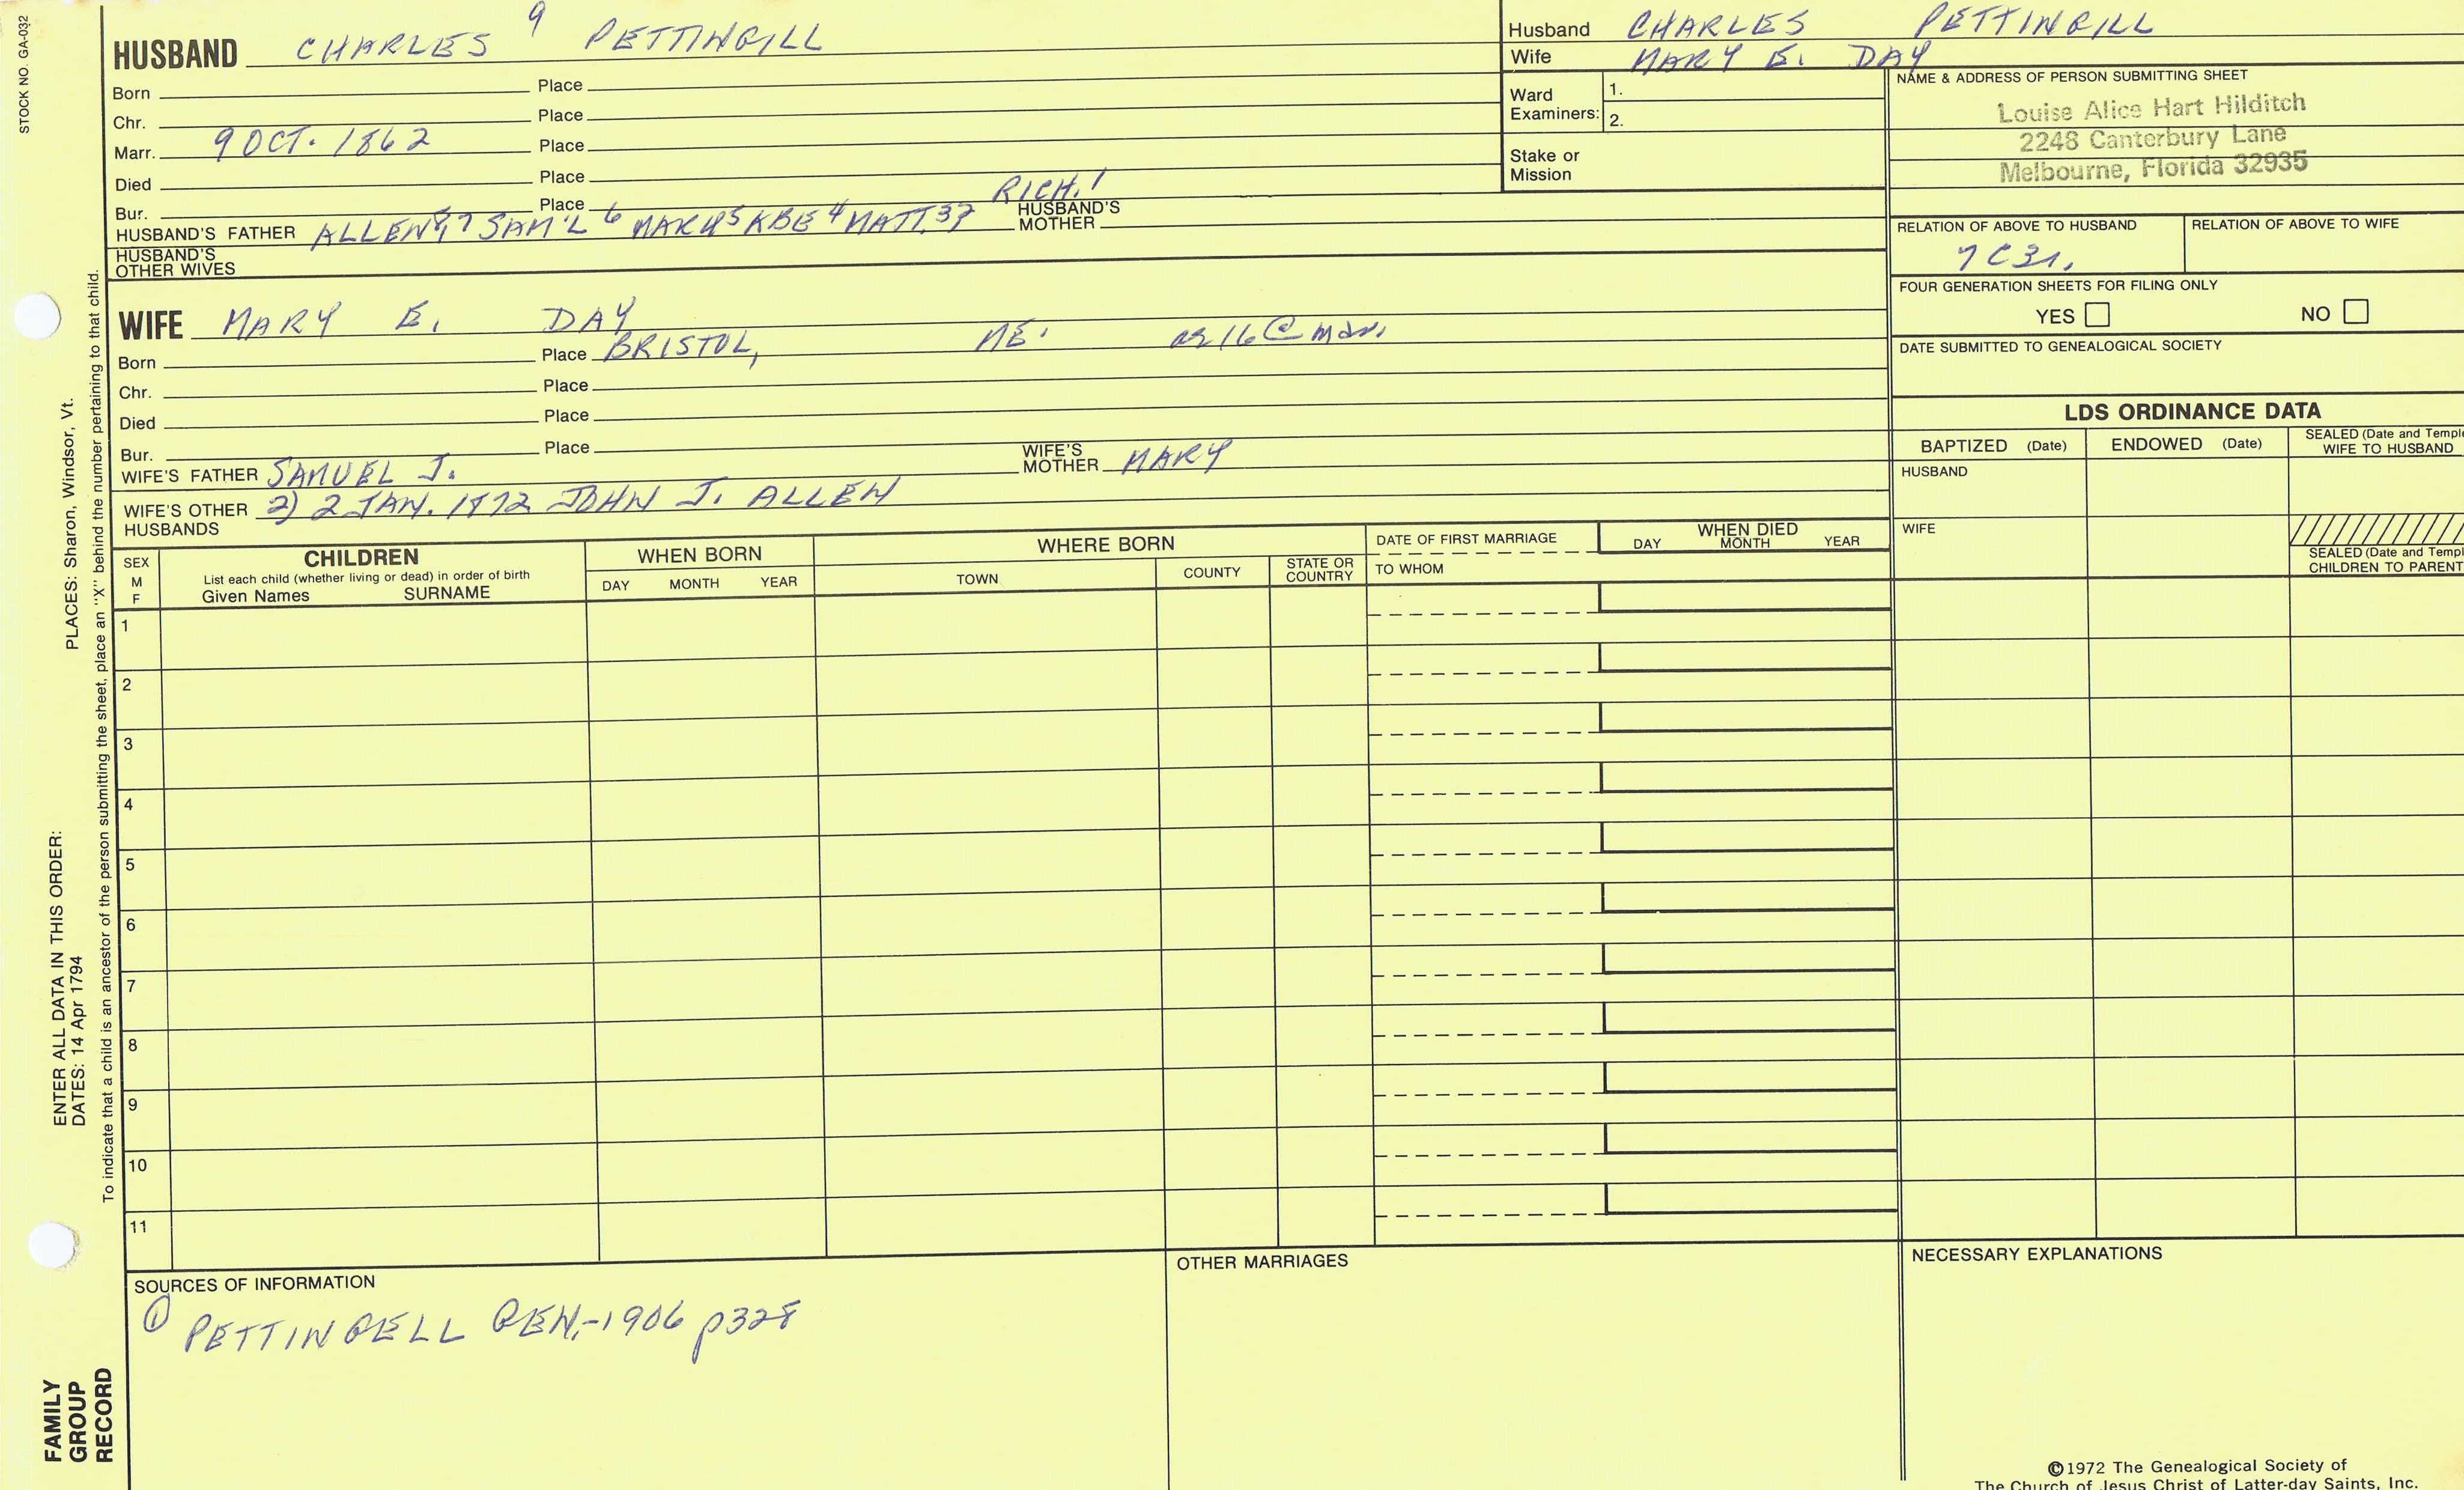 STOCK NO. GA-032
HUSBAND CHARLES 9 PETTINGILL
Born Place
Chr. Place
Marr. 9 OCT. 1862 Place
Died Place
Bur. Place
RICH.1
HUSBAND'S FATHER ALLEN 8,7 SAM'L 6 MARK 5 ABE 4 MATT. 3, HUSBAND'S MOTHER
HUSBAND'S OTHER WIVES
Husband CHARLES PETTINGILL
Wife MARY E. DAY
Ward Examiners: 1.
2.
Stake or Mission
NAME & ADDRESS OF PERSON SUBMITTING SHEET
Louise Alice Hart Hilditch
2248 Canterbury Lane
Melbourne, Florida 32935
RELATION OF ABOVE TO HUSBAND
7C3r.
RELATION OF ABOVE TO WIFE
FOUR GENERATION SHEETS FOR FILING ONLY
YES NO
DATE SUBMITTED TO GENEALOGICAL SOCIETY
WIFE MARY E. DAY
Born Place BRISTOL, ME. 16 @
Chr. Place
Died Place
Bur. Place
WIFE'S FATHER SAMUEL J. WIFE'S MOTHER MARY
WIFE'S OTHER HUSBANDS 2) 2 JAN. 1872 JOHN J. ALLEN
LDS ORDINANCE DATA
BAPTIZED (Date) ENDOWED (Date) SEALED (Date and Temple
WIFE TO HUSBAND
HUSBAND
WIFE
SEALED (Date and Templ
CHILDREN TO PARENT
SEX
M
F
CHILDREN
List each child (whether living or dead) in order of birth
Given Names SURNAME
WHEN BORN
DAY MONTH YEAR
WHERE BORN
TOWN COUNTY STATE OR COUNTRY
DATE OF FIRST MARRIAGE
TO WHOM
WHEN DIED
DAY MONTH YEAR
1
2
3
4
5
6
7
8
9
10
11
SOURCES OF INFORMATION
① PETTINGELL GEN.-1906 p328
OTHER MARRIAGES
NECESSARY EXPLANATIONS
To indicate that a child is an ancestor of the person submitting the sheet, place an "X" behind the number pertaining to that child.
ENTER ALL DATA IN THIS ORDER:
DATES: 14 Apr 1794
PLACES: Sharon, Windsor, Vt.
FAMILY
GROUP
RECORD
©1972 The Genealogical Society of
The Church of Jesus Christ of Latter-day Saints, Inc.